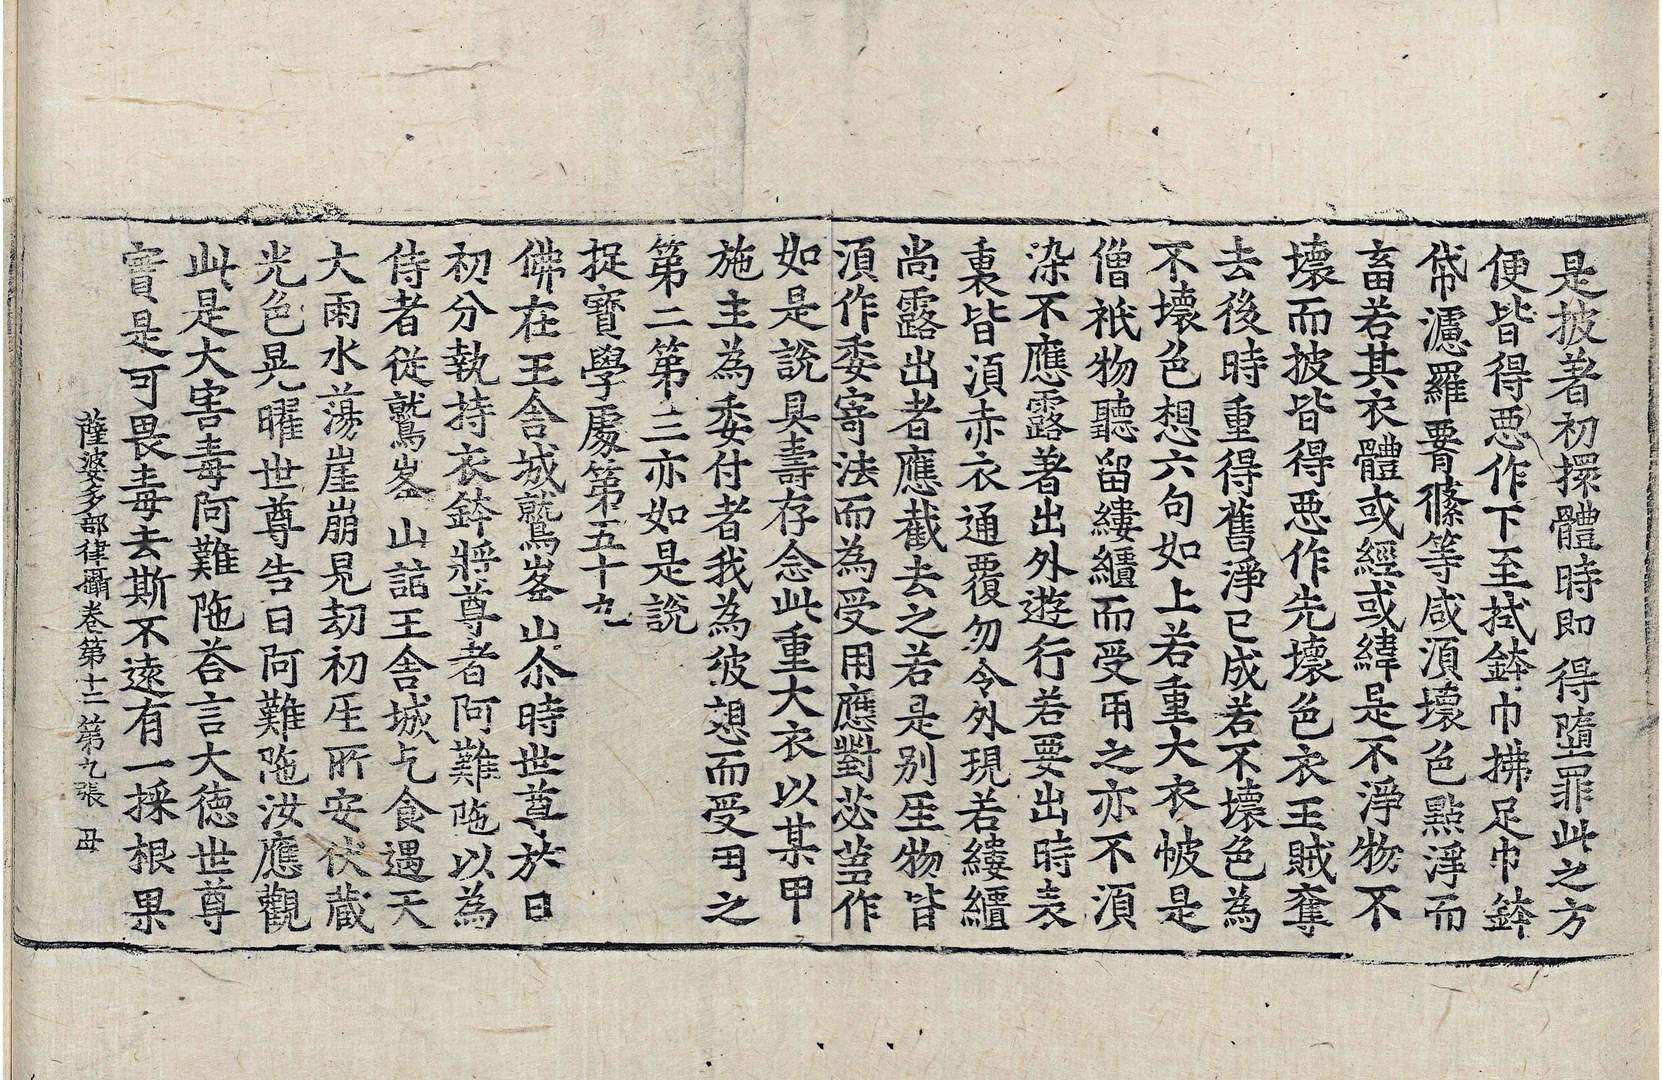 是披著初擐體時即得墮罪此之方
便皆得悪作下至拭鉢巾拂足巾鉢
帒濾羅䙅絛等咸湏壞色㸃淨而
畜若其衣體或經或緯是不淨物不
壞而披皆得悪作先壞色衣王賊奪
去後時重得舊淨已成若不壞色為
不壞色想六句如上若重大衣帔是
僧祇物聽留縷繬而受用之亦不湏
染不應露著出外遊行若要出時表
裏皆湏赤衣通覆勿令外現若縷繬
尚露出者應截去之若是别生物皆
湏作委寄法而為受用應對苾蒭作
如是說具壽存念此重大衣以某甲
施主為委付者我為彼想而受用之
第二第三亦如是說
捉寶學處第五十九
佛在王舍城鷲峯山尒時世尊於日
初分執持衣鉢將尊者阿難陁以為
侍者從鷲峯山詣王舍城乞食遇天
大雨水蕩崖崩見劫初生所安伏藏
光色晃曜世尊告曰阿難陁汝應觀
此是大害毒阿難陁荅言大德世尊
實是可畏毒去斯不遠有一採根果
薩婆多部律攝卷第十二 第九張 毋